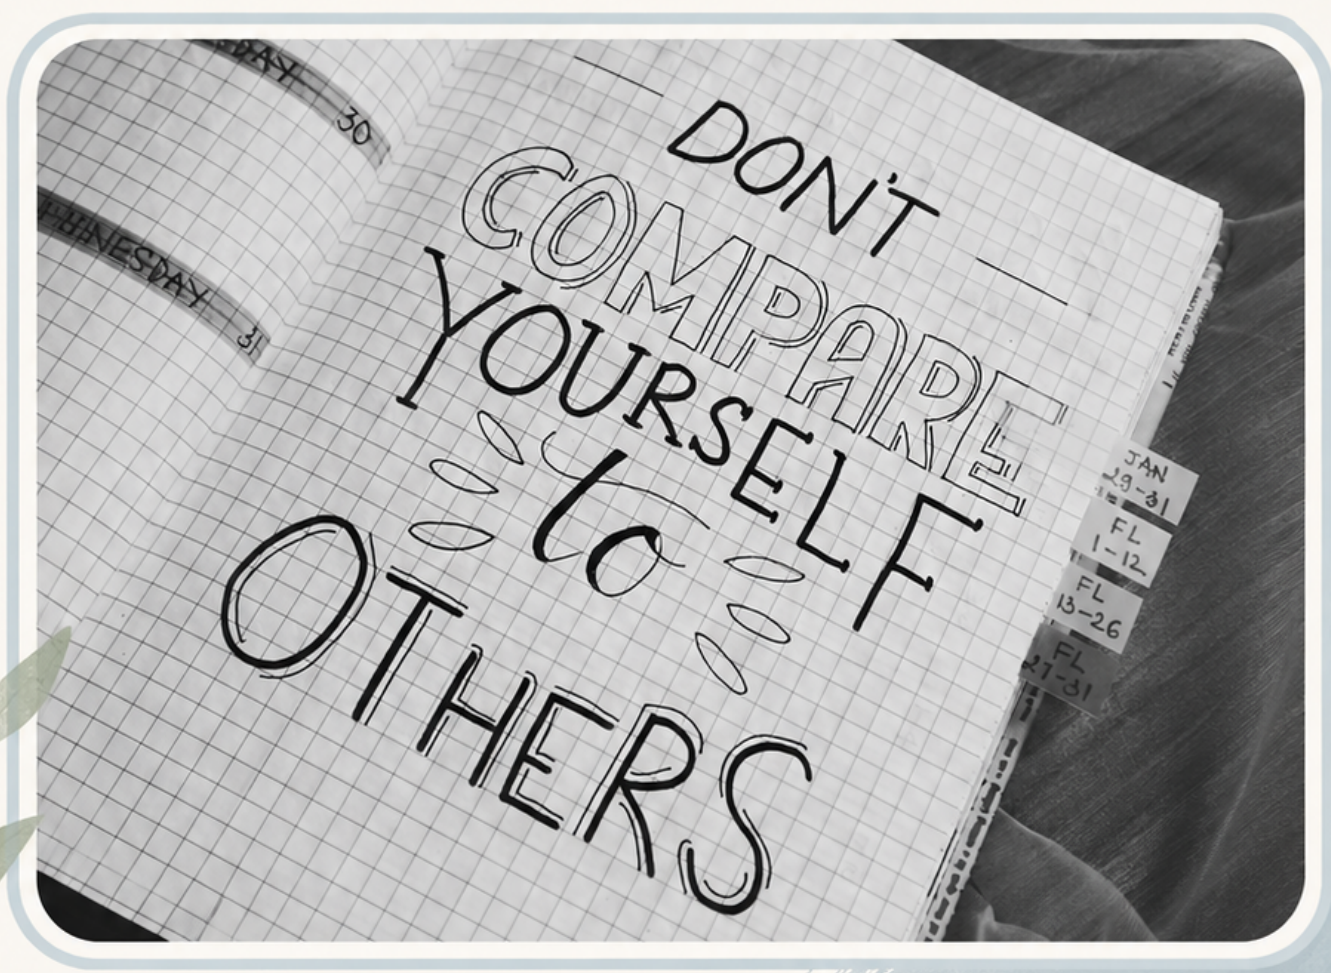 DAY
30
WEDNESDAY
31
DON'T
COMPARE
YOURSELF
to
OTHERS
JAN
29-31
FL
1-12
FL
13-26
FL
27-31